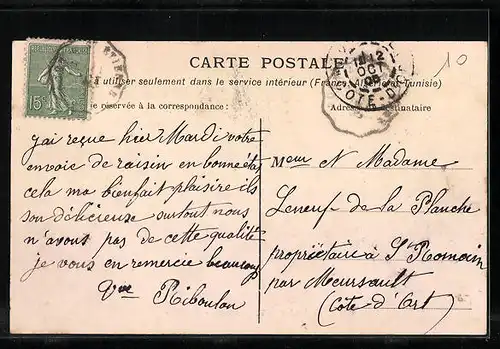 10
CARTE POSTALE
à utiliser seulement dans le service intérieur (France, Algérie et Tunisie)
réservée à la correspondance :
Adresse du destinataire
15
12
OCT
CÔTE-D'OR
j'ai reçue hier Mardi votre
envoie de raisin en bonne état
cela ma bienfait plaisire ils
son délicieuse surtout nous
n'avous pas de cette qualité
je vous en remercie beaucoup
Vve Riboulon
Meur et Madame
Leneuf-de-la Planche
propriétaire à St Romain
par Meursault
(Côte-d'Ort)